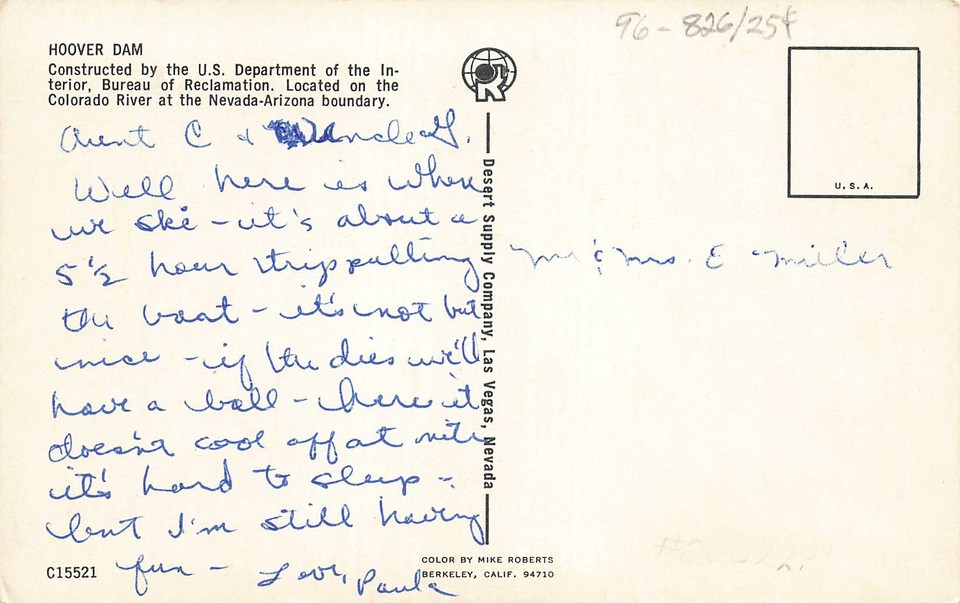 96-826/25¢
HOOVER DAM
Constructed by the U.S. Department of the In-
terior, Bureau of Reclamation. Located on the
Colorado River at the Nevada-Arizona boundary.
Aunt C & Uncle G.
Well here is where
we ski - it's about a
5 1/2 hour trip pulling
the boat - it's hot but
nice - if the dies we'll
have a ball - here it
doesn't cool off at nite
it's hard to sleep -
but I'm still having
fun - Love, Paula
C15521
Desert Supply Company, Las Vegas, Nevada
COLOR BY MIKE ROBERTS
BERKELEY, CALIF. 94710
U.S.A.
Mr & Mrs. E Miller